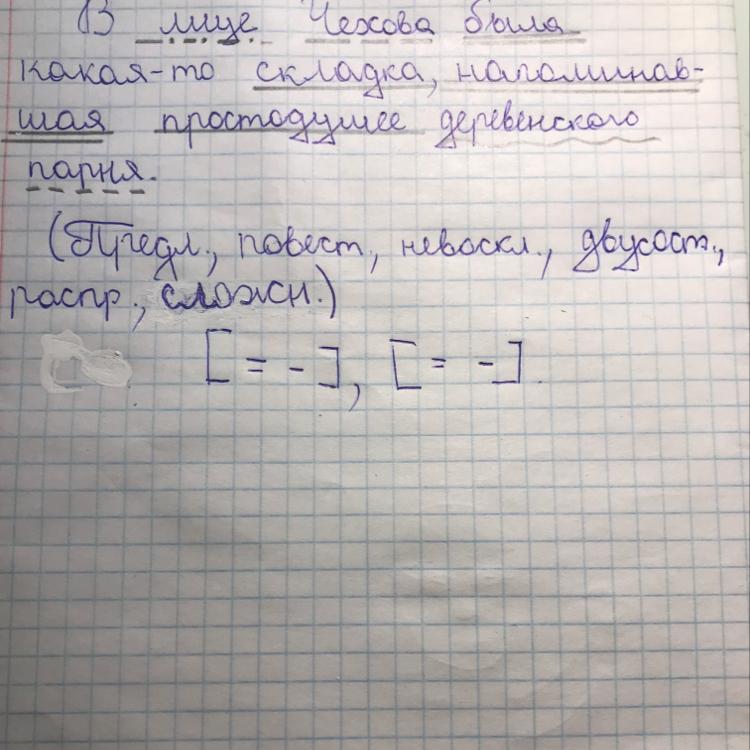 В лице Чехова была
какая-то складка, напоминав-
шая простодушее деревенского
парня.
(Предл., повест., невоскл., двусост.,
распр., сложн.)
[= -], [= -].